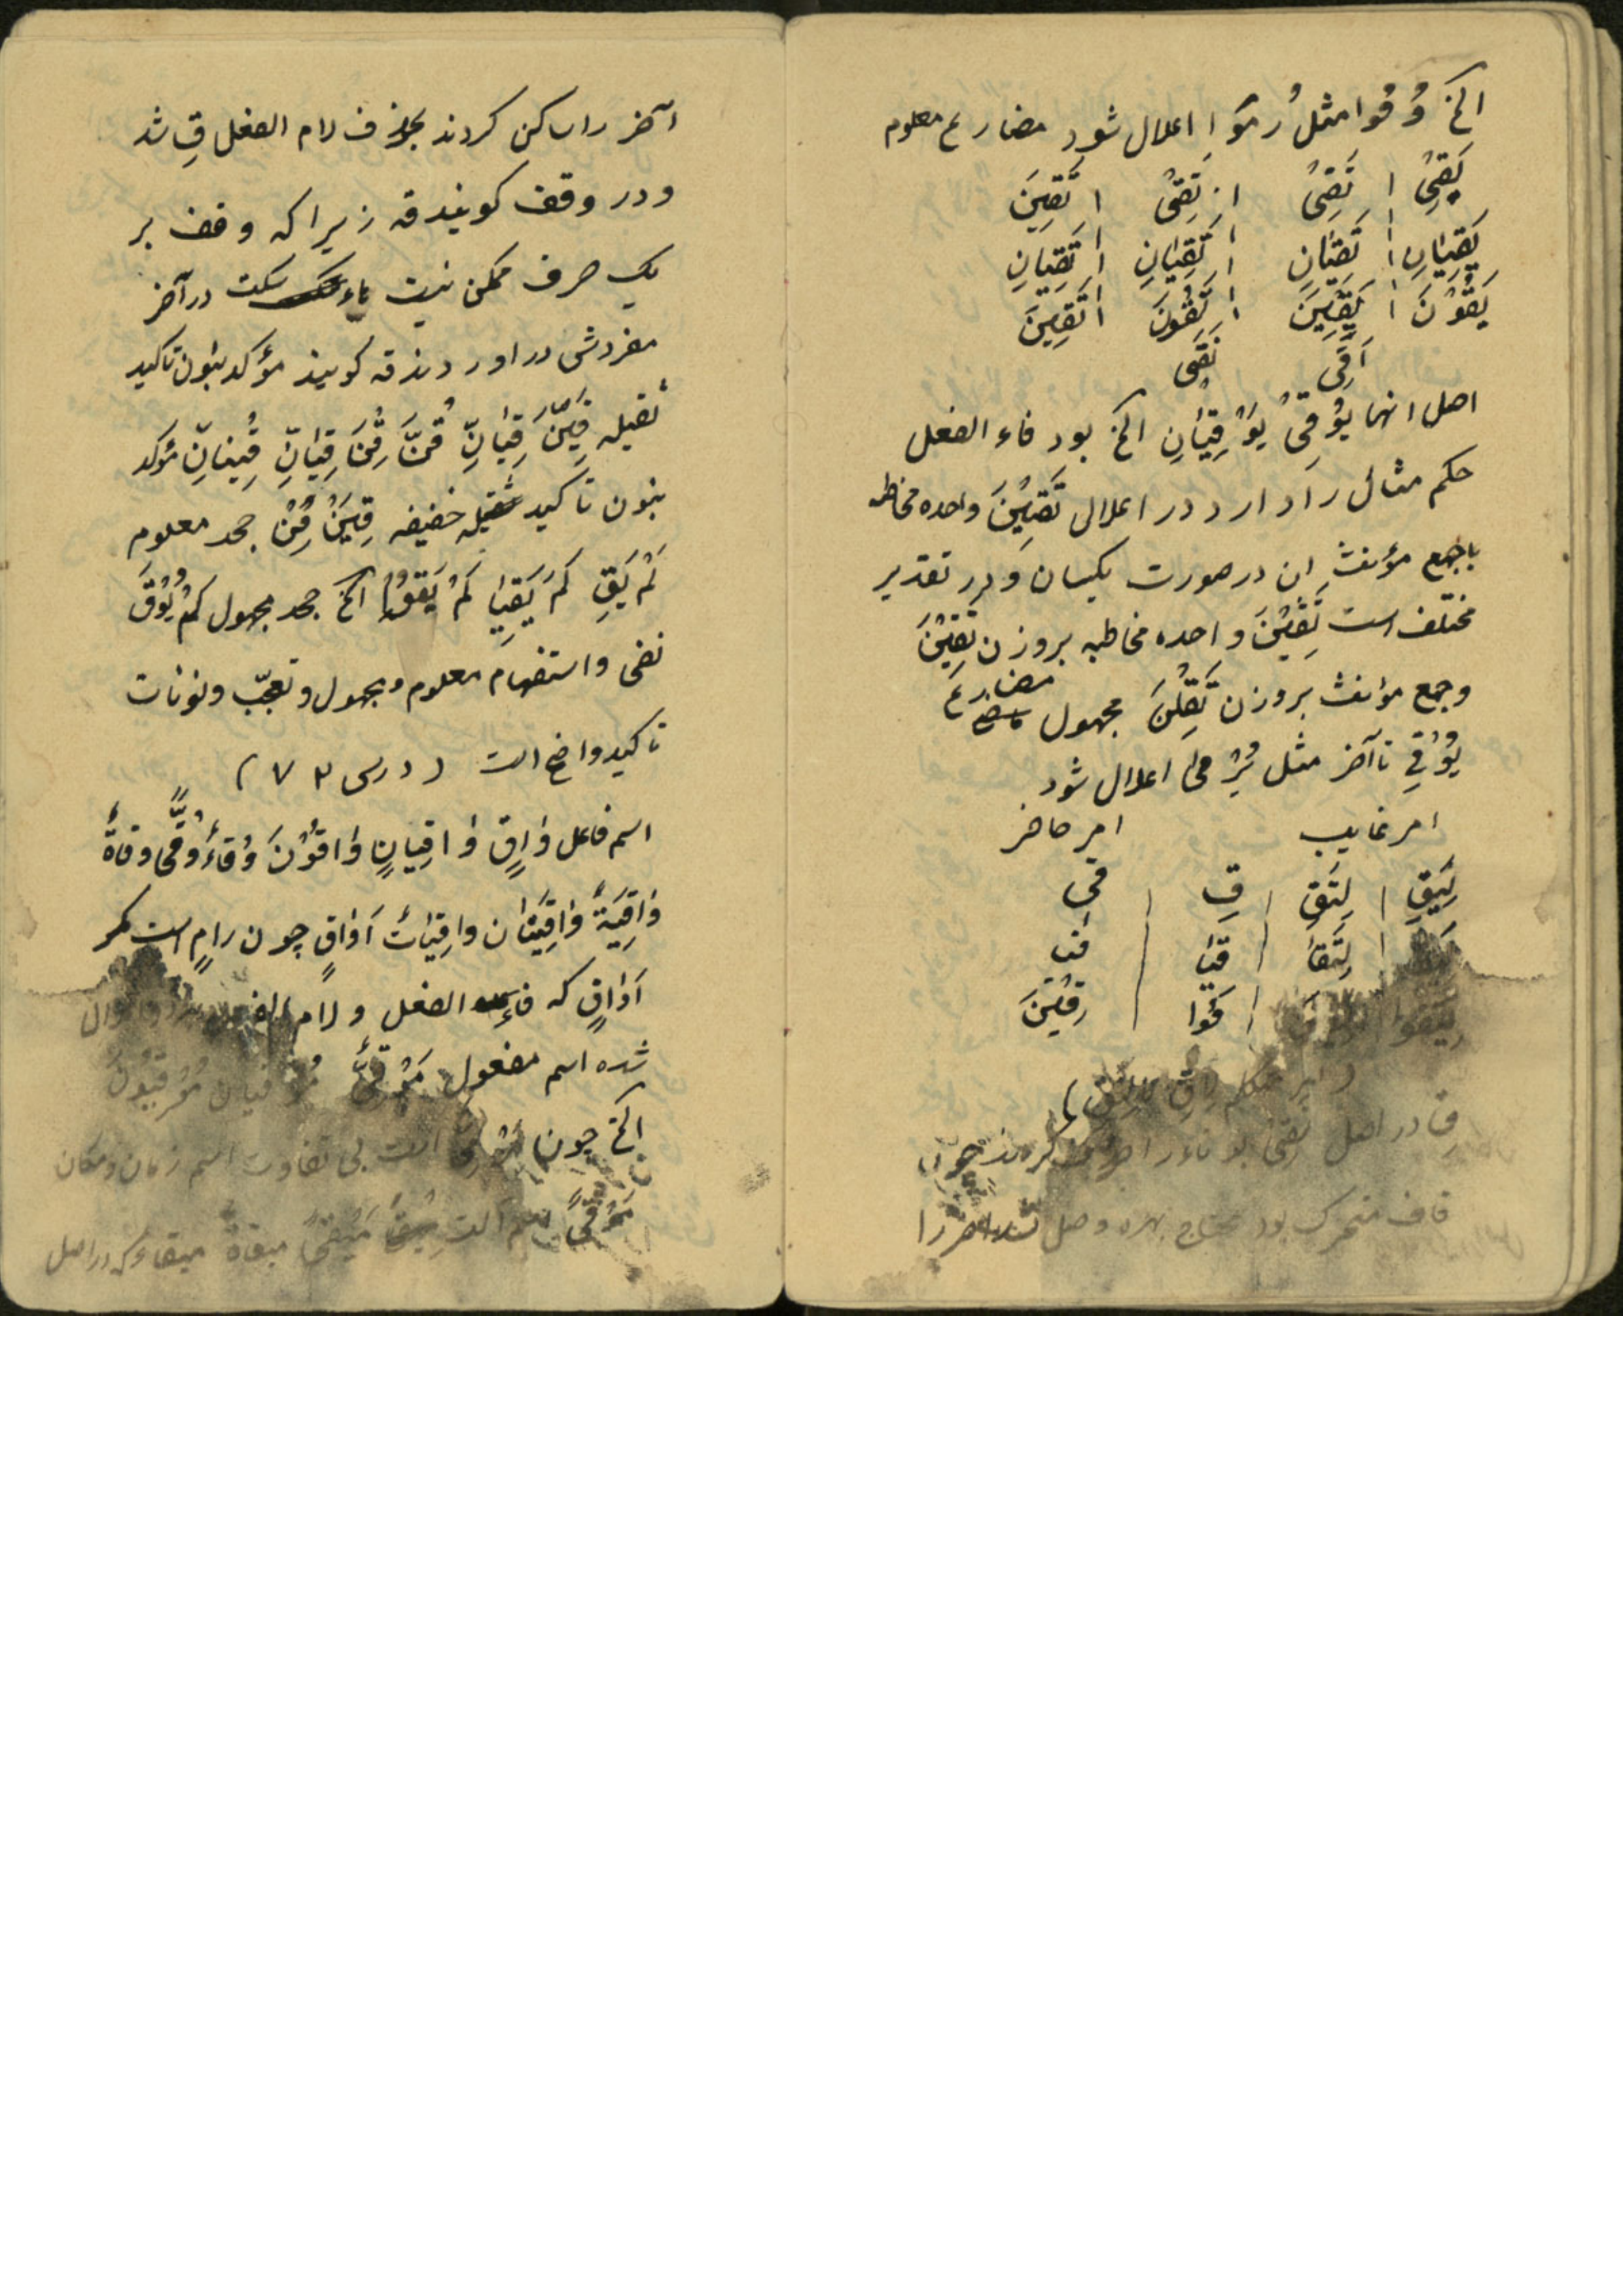 الخ وُقُوا مثل رُمَوا اعلال شود مضارع معلوم
يَقِىُ ا تَقِىُ ا تَقِىُ ا تَقِينَ
يَقِيٰانِ ا تَقِيٰانِ ا تَقِيٰانِ ا تَقِيٰانِ
يَقُوْنَ ا يَقِيْنَ ا تَقُونَ ا تَقِيْنَ
اَقِى نَقِى
اصل انها يُوْقِىُ يَوْقِيٰانِ الخ بود فاء الفعل
حكم مثال را دارد در اعلال تَقِيْنَ واحده مخاطبه
با جمع مؤنث ان در صورت يكسان و در تقدير
مختلف است تَقِيْنَ واحده مخاطبه بروزن تَقِيْنَ
وجمع مؤنث بروزن تَقِلْنَ مجهول مضارع
يُوْقىٰ تا آخر مثل يُرْمىٰ اعلال شود
امر غايب امر حاضر
لِيَقِ ا لِتَقِ ا قِ ا قى
لِتَقيٰا ا قيٰا ا قيا
لِيَقُوا ا قُوا ا قِيْنَ
قِ در اصل تَقىُ بود تاء را حذف كردند چون
قاف متحرك بود محتاج بهمزه وصل نشد آخر را
آخر را ساكن كردند بحذف لام الفعل قِ شد
و در وقف كويند قه زيرا كه وقف بر
يك حرف ممكن نيست هاء سكت در آخر
مفردش در اوردند قه كويند مؤكد بنون تاكيد
ثقيله قِيَنَّ قِيٰانِّ قُنَّ قِنَّ قِيٰانِّ قِينانِّ مؤكد
بنون تاكيد خفيفه قِيَنْ قُنْ جحد معلوم
لَمْ يَقِ لَمْ يَقِيٰا لَمْ يَقُوا الخ جحد مجهول لَمْ يُوْقَ
نفى و استفهام معلوم و مجهول و تعجّب و نونات
تاكيد واضح است ( درس ٧٣ )
اسم فاعل وٰاقٍ وٰاقِيٰانِ وٰاقُوْنَ وُقٰاءٌ وُقًّى وقاةٌ
وٰاقِيَةٌ وٰاقِيَتٰان واقِيٰاتٌ اَوٰاقٍ چون رامٍ است مكر
اَوٰاقٍ كه فاء الفعل و لام الفعل
شده اسم مفعول مَوْقىٌّ مَوْقيان مَوْقيّونَ
الخ چون مَرْمىّ است بى تفاوت اسم زمان و مكان
مَوْقىً اسم آلت مِيْقىً ميقاةٌ ميقاء كه در اصل